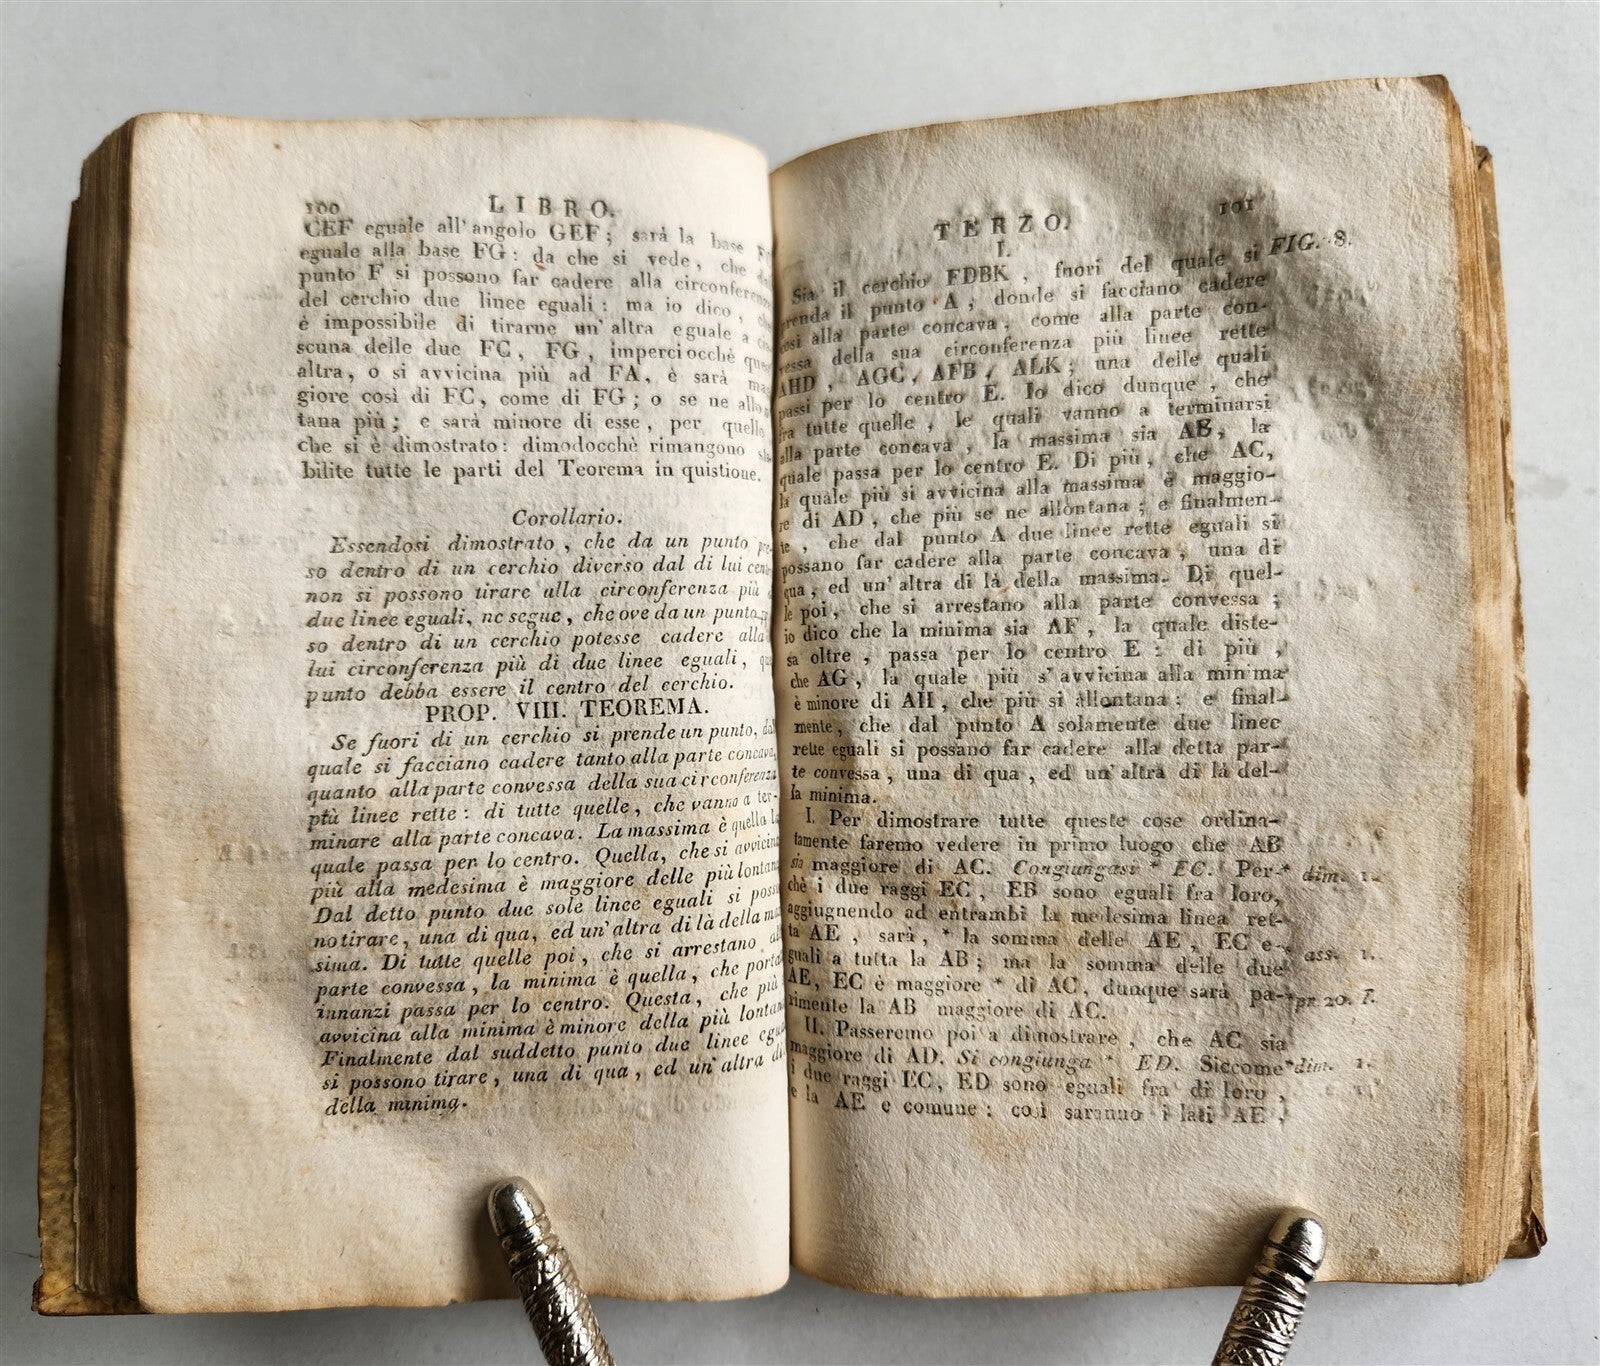 100 LIBRO.
CEF eguale all'angolo GEF; sarà la base
eguale alla base FG: da che si vede, che
punto F si possono far cadere alla circonferenza
del cerchio due linee eguali: ma io dico,
è impossibile di tirarne un'altra eguale a
scuna delle due FC, FG, imperciocchè
altra, o si avvicina più ad FA, e sarà
giore così di FC, come di FG; o se ne
tana più; e sarà minore di esse, per quello
che si è dimostrato: dimodocchè rimangono
bilite tutte le parti del Teorema in quistione.
Corollario.
Essendosi dimostrato, che da un punto
so dentro di un cerchio diverso dal di lui
non si possono tirare alla circonferenza più
due linee eguali, ne segue, che ove da un punto
so dentro di un cerchio potesse cadere alla
lui circonferenza più di due linee eguali,
punto debba essere il centro del cerchio.
PROP. VIII. TEOREMA.
Se fuori di un cerchio si prende un punto,
quale si facciano cadere tanto alla parte concava,
quanto alla parte convessa della sua circonferenza
più linee rette: di tutte quelle, che vanno a ter-
minare alla parte concava. La massima è quella
quale passa per lo centro. Quella, che si avvicina
più alla medesima è maggiore delle più lontane
Dal detto punto due sole linee eguali si
no tirare, una di qua, ed un'altra di là della
sima. Di tutte quelle poi, che si arrestano
parte convessa, la minima è quella, che
innanzi passa per lo centro. Questa, che più
avvicina alla minima è minore della più
Finalmente dal suddetto punto due linee
si possono tirare, una di qua, ed un'altra di
della minima.
TERZO. 101
I.
Sia il cerchio FDBK, fuori del quale si FIG. 8.
prenda il punto A, donde si facciano cadere
così alla parte concava, come alla parte con-
vessa della sua circonferenza più linee rette
AHD, AGC, AFB, ALK; una delle quali
passi per lo centro E. Io dico dunque, che
fra tutte quelle, le quali vanno a terminarsi
alla parte concava, la massima sia AB, la
quale passa per lo centro E. Di più, che AC,
la quale più si avvicina alla massima è maggio-
re di AD, che più se ne allontana; e finalmen-
te, che dal punto A due linee rette eguali si
possano far cadere alla parte concava, una di
qua, ed un'altra di là della massima. Di quel-
le poi, che si arrestano alla parte convessa;
io dico che la minima sia AF, la quale diste-
sa oltre, passa per lo centro E: di più,
che AG, la quale più s'avvicina alla minima
è minore di AH, che più si allontana: e final-
mente, che dal punto A solamente due linee
rette eguali si possano far cadere alla detta par-
te convessa, una di qua, ed un'altra di là del-
la minima.
I. Per dimostrare tutte queste cose ordina-
tamente faremo vedere in primo luogo che AB
sia maggiore di AC. Congiungasi * EC. Per- * dim. 1.
chè i due raggi EC, EB sono eguali fra loro,
aggiugnendo ad entrambi la medesima linea ret-
ta AE, sarà, * la somma delle AE, EC e- * ass. 1.
guali a tutta la AB; ma la somma delle due
AE, EC è maggiore * di AC, dunque sarà pa- * pr. 20. I.
rimente la AB maggiore di AC.
II. Passeremo poi a dimostrare, che AC sia
maggiore di AD. Si congiunga * ED. Siccome * dim. 1.
i due raggi EC, ED sono eguali fra di loro,
e la AE e comune: così saranno i lati AE,